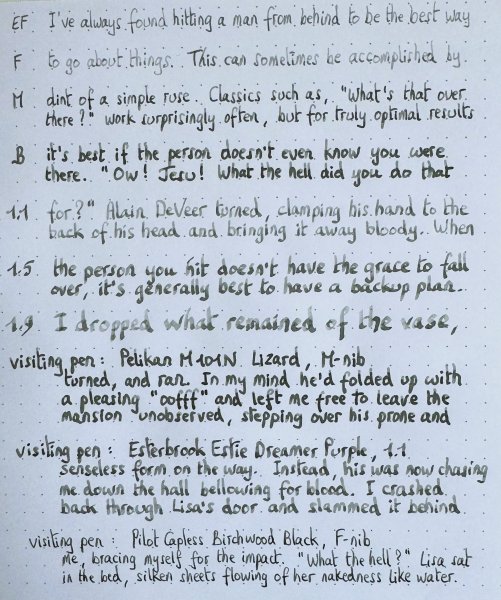 EF I've always found hitting a man from behind to be the best way
F to go about things. This can sometimes be accomplished by
M dint of a simple ruse. Classics such as, "What's that over
there?" work surprisingly often, but for truly optimal results
B it's best if the person doesn't even know you were
there. "Ow! Jesu! What the hell did you do that
1.1 for?" Alain DeVeer turned, clamping his hand to the
back of his head and bringing it away bloody. When
1.5 the person you hit doesn't have the grace to fall
over, it's generally best to have a backup plan.
1.9 I dropped what remained of the vase,
visiting pen: Pelikan M101N Lizard, M-nib
turned, and ran. In my mind he'd folded up with
a pleasing "oofff" and left me free to leave the
mansion unobserved, stepping over his prone and
visiting pen: Esterbrook Estie Dreamer Purple, 1.1
senseless form on the way. Instead, his was now chasing
me down the hall bellowing for blood. I crashed
back through Lisa's door and slammed it behind
visiting pen: Pilot Capless Birchwood Black, F-nib
me, bracing myself for the impact. "What the hell?" Lisa sat
in the bed, silken sheets flowing of her nakedness like water.